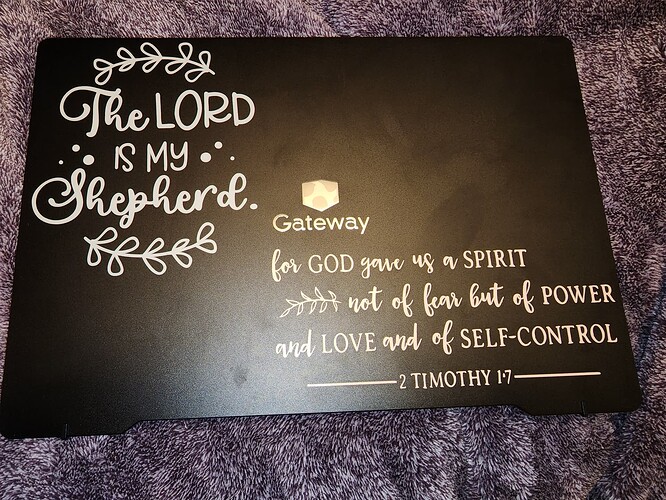 The LORD
IS MY
Shepherd.
Gateway
for GOD gave us a SPIRIT
not of fear but of POWER
and LOVE and of SELF-CONTROL
2 TIMOTHY 1:7